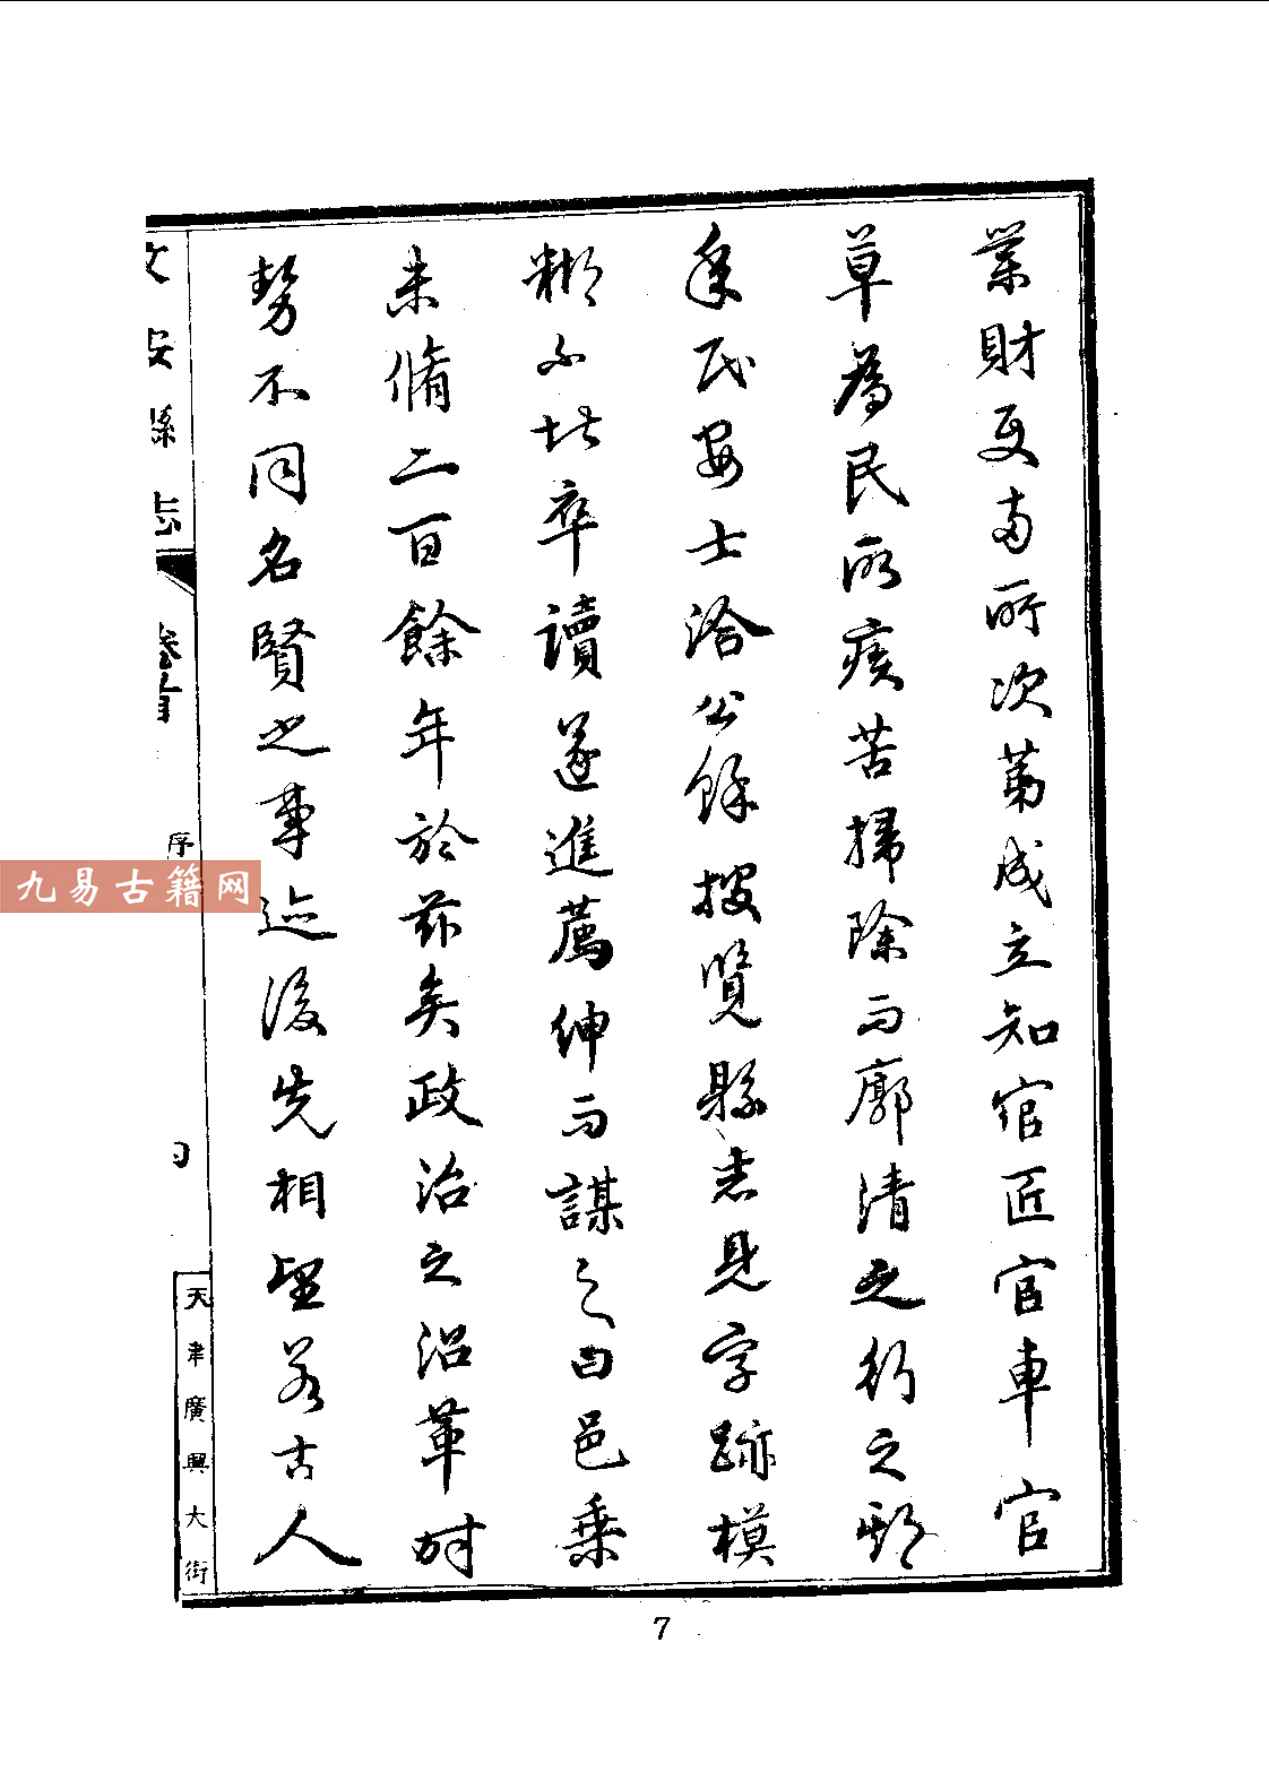 業財更有所次第成立知官匠官車官
草為民所疾苦掃除而廓清之行之期
年民安士洽公餘披覽縣志見字跡模
糊不堪卒讀遂進薦紳而謀之曰邑乘
未脩二百餘年於茲矣政治之沿革時
勢不同名賢之事迹後先相望若古人
文安縣志
卷首
序
天津廣興大街
九易古籍网
7